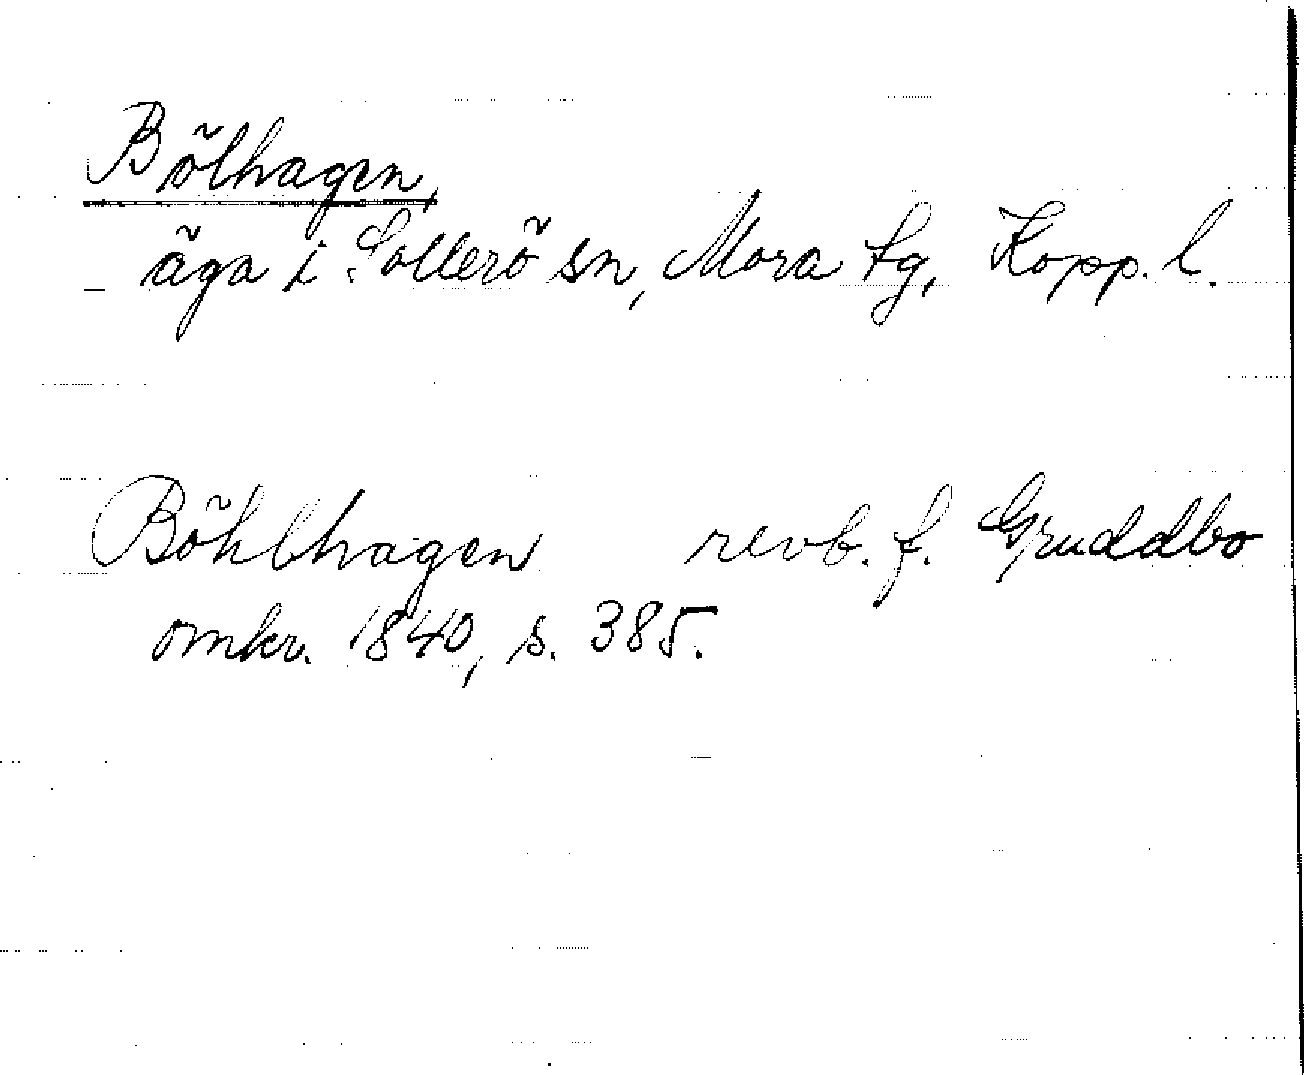 Bölhagen,
äga i Sollerö sn, Mora tg, Kopp. l.
Böhlhagen revb. f. Gruddbo
omkr. 1840, s. 385.